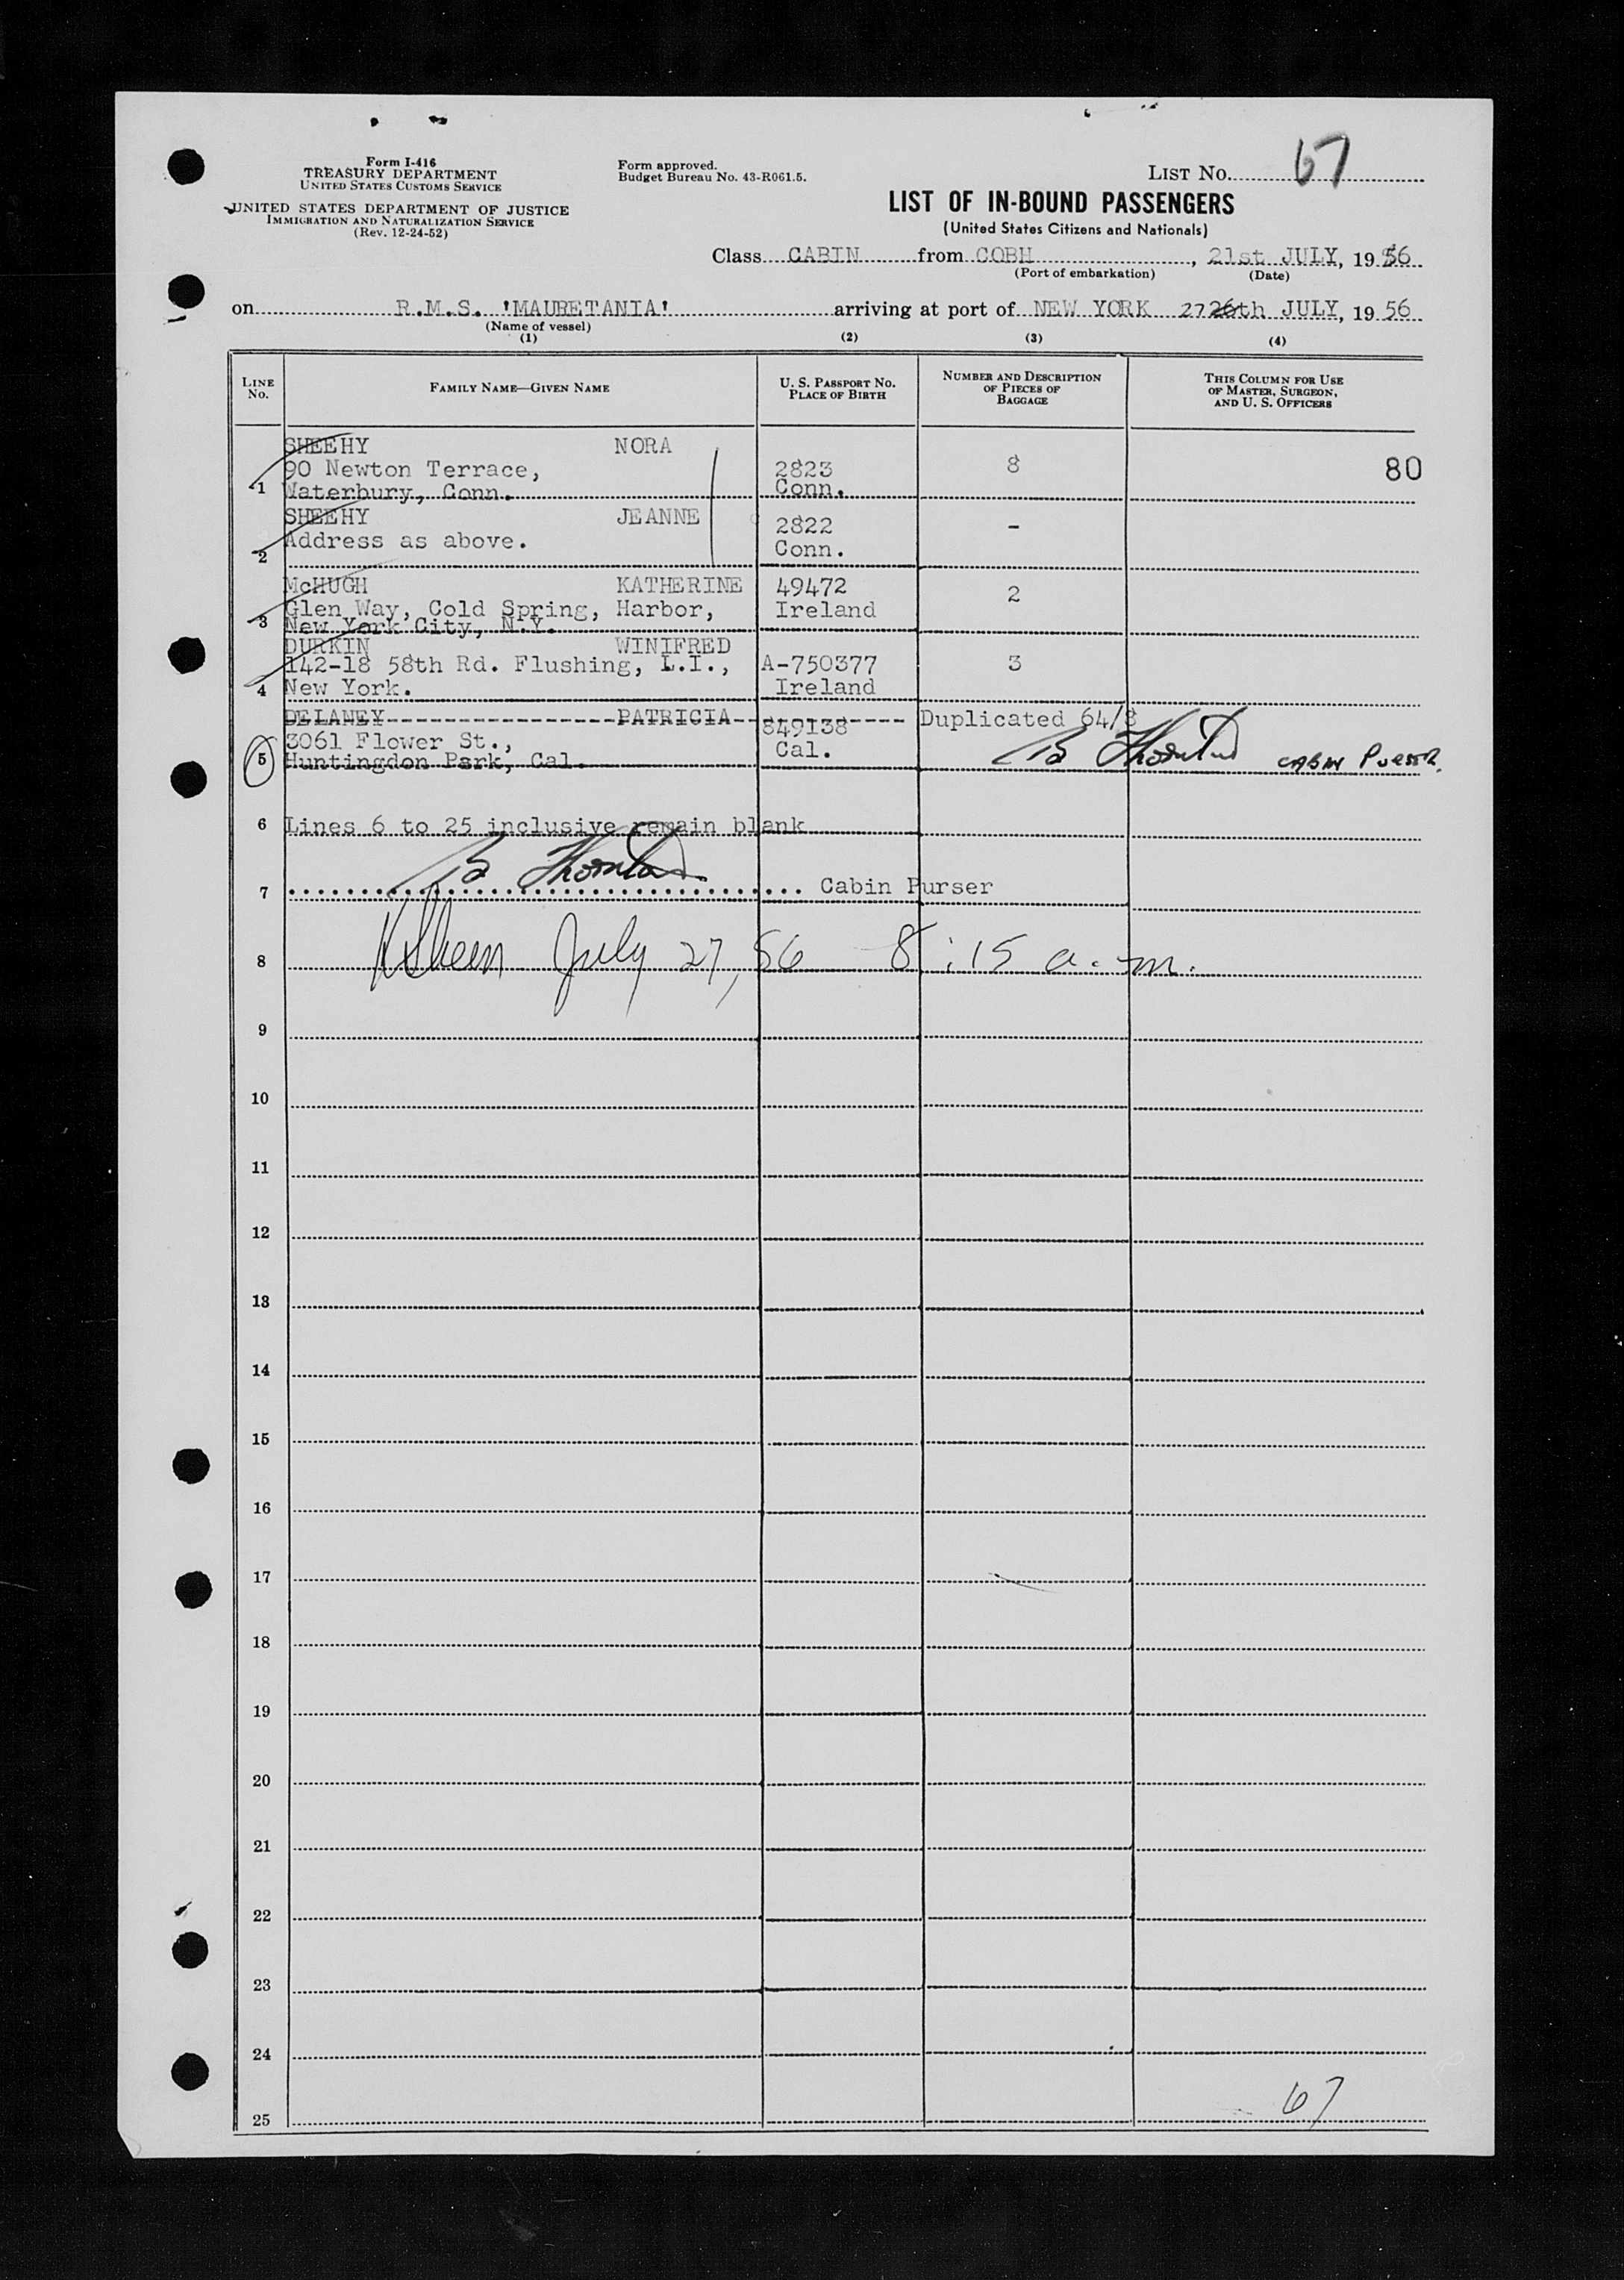 Form I-416
TREASURY DEPARTMENT
UNITED STATES CUSTOMS SERVICE
UNITED STATES DEPARTMENT OF JUSTICE
IMMIGRATION AND NATURALIZATION SERVICE
(Rev. 12-24-52)
Form approved.
Budget Bureau No. 43-R061.5.
LIST No. 67
LIST OF IN-BOUND PASSENGERS
(United States Citizens and Nationals)
Class CABIN from COBH, 21st JULY, 1956
(Port of embarkation) (Date)
on R.M.S. 'MAURETANIA' arriving at port of NEW YORK 27 26th JULY, 1956
(Name of vessel)
(1) (2) (3) (4)
LINE No. FAMILY NAME—GIVEN NAME U. S. PASSPORT No. PLACE OF BIRTH NUMBER AND DESCRIPTION OF PIECES OF BAGGAGE THIS COLUMN FOR USE OF MASTER, SURGEON, AND U. S. OFFICERS
SHEEHY NORA
90 Newton Terrace, 2823 8 80
1 Waterbury, Conn. Conn.
SHEEHY JEANNE 2822 -
2 Address as above. Conn.
McHUGH KATHERINE 49472 2
3 Glen Way, Cold Spring, Harbor, Ireland
New York City, N.Y.
DURKIN WINIFRED
142-18 58th Rd. Flushing, L.I., A-750377 3
4 New York. Ireland
DELANEY-----------------PATRICIA--849138---- Duplicated 64/8
3061 Flower St., Cal.
5 Huntingdon Park, Cal. B Thornton CABIN PURSER.
6 Lines 6 to 25 inclusive remain blank
B Thornton
7 Cabin Purser
8 July 27, 56 8:15 a.m.
9
10
11
12
13
14
15
16
17
18
19
20
21
22
23
24
67
25